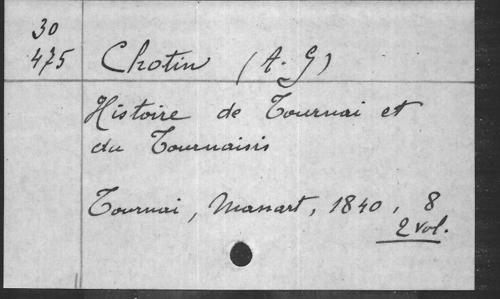 30
475
Chotin (A. G)
Histoire de Tournai et
du Tournaisis
Tournai, Manart, 1840, 8
2 vol.